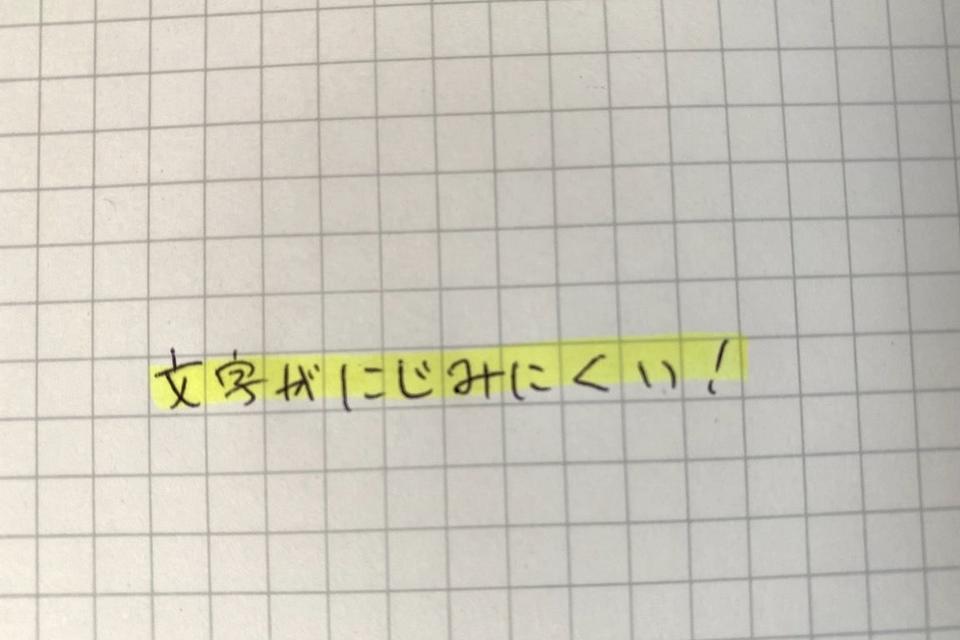 文字がにじみにくい!